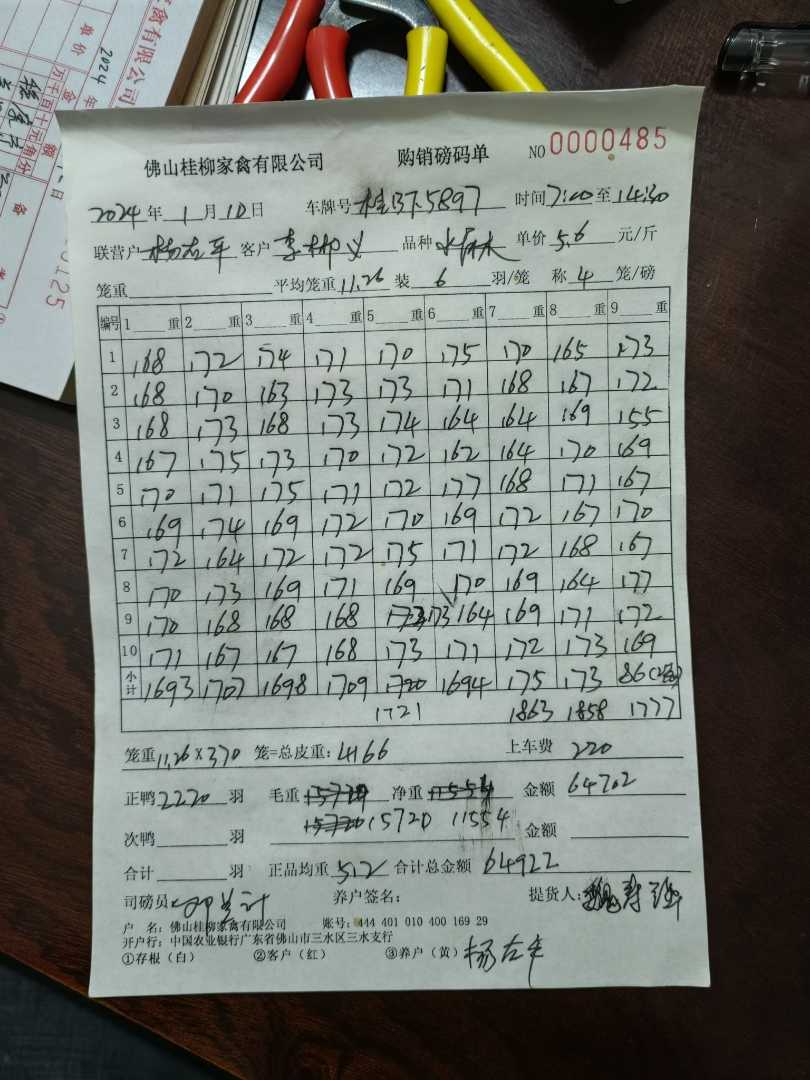 禽有限公司
2024 年
单价
金额
万千百十元角分
备
0125
佛山桂柳家禽有限公司 购销磅码单 NO 0000485
2024 年 1 月 10 日 车牌号 桂 5897 时间 7:00 至 14:30
联营户 杨左平 客户 李 义 品种 单价 5.6 元/斤
笼重 平均笼重 11.26 装 6 羽/笼 称 4 笼/磅
编号 1 重 2 重 3 重 4 重 5 重 6 重 7 重 8 重 9 重
1 168 172 174 171 170 175 170 165 173
2 168 170 163 173 173 171 168 167 172
3 168 173 168 173 174 164 164 169 155
4 167 175 173 170 172 162 164 170 169
5 170 171 175 171 172 177 168 171 167
6 169 174 169 172 170 169 172 167 170
7 172 164 172 172 175 171 172 168 167
8 170 173 169 171 169 170 169 164 177
9 170 168 168 168 173 173 164 169 171 172
10 171 167 167 168 173 171 172 173 169
小计 1693 1707 1698 1709 1720 1694 175 173 86
1721 1863 1858 1777
笼重 11.26 X 370 笼=总皮重: 4166 上车费 220
正鸭 2220 羽 毛重 15720 净重 11554 金额 64702
次鸭 羽 15720 15720 11554 金额
合计 羽 正品均重 5.2 合计总金额 64922
司磅员 养户签名: 提货人:
户 名: 佛山桂柳家禽有限公司 账号: 444 401 010 400 169 29
开户行: 中国农业银行广东省佛山市三水区三水支行
①存根(白) ②客户(红) ③养户(黄) 杨左平